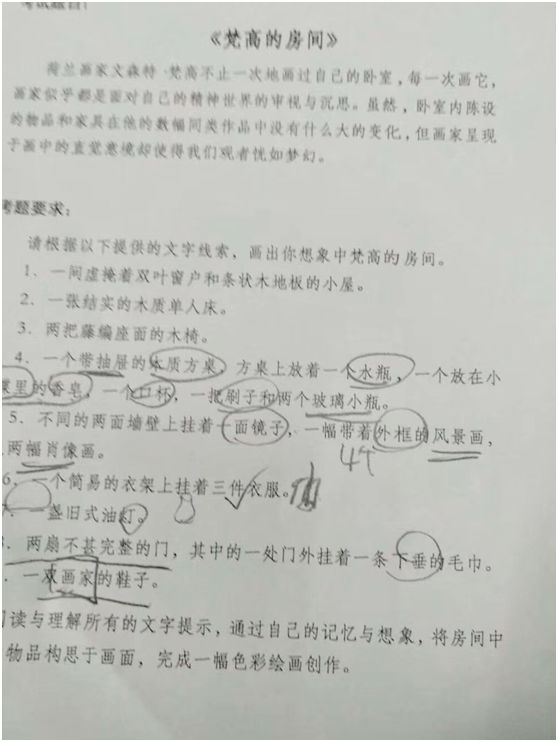 考试题目：
《梵高的房间》
荷兰画家文森特·梵高不止一次地画过自己的卧室，每一次画它，
画家似乎都是面对自己的精神世界的审视与沉思。虽然，卧室内陈设
的物品和家具在他的数幅同类作品中没有什么大的变化，但画家呈现
于画中的直觉意境却使得我们观者恍如梦幻。
考题要求：
请根据以下提供的文字线索，画出你想象中梵高的房间。
1、一间虚掩着双叶窗户和条状木地板的小屋。
2、一张结实的木质单人床。
3．两把藤编座面的木椅。
4．一个带抽屉的木质方桌，方桌上放着一个水瓶，一个放在小
里的香皂，一个口杯，一把刷子和两个玻璃小瓶。
5．不同的两面墙壁上挂着一面镜子，一幅带着外框的风景画，
两幅肖像画。
4个
6、一个简易的衣架上挂着三件衣服。
一盏旧式油灯。
两扇不甚完整的门，其中的一处门外挂着一条下垂的毛巾。
一双画家的鞋子。
读与理解所有的文字提示，通过自己的记忆与想象，将房间中
物品构思于画面，完成一幅色彩绘画创作。